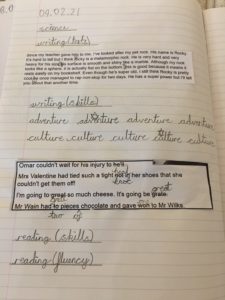 09.02.21
science
writing (facts)
Since my teacher gave him to me, I've looked after my pet rock. His name is Rocky.
It's hard to tell but I think Rocky is a metamorphic rock. He is very hard and very
heavy for his size. His surface is smooth and shiny like a marble. Although my rock
looks like a sphere, it is actually flat on the bottom. This is good because it means it
rests easily on my bookshelf. Even though he's super old, I still think Rocky is pretty
He has a super power but I'll tell
you about that another time.
writing (skills)
adventure adventure adventure adventure
culture culture culture culture culture
Omar couldn't wait for his injury to heal
Mrs Valentine had tied such a tight not in her shoes that she
knot
couldn't get them off!
great
I'm going to great so much cheese. It's going be grate.
Mr Wain had to pieces chocolate and gave won to Mr Wilks.
two of
reading (skills)
reading (fluency)